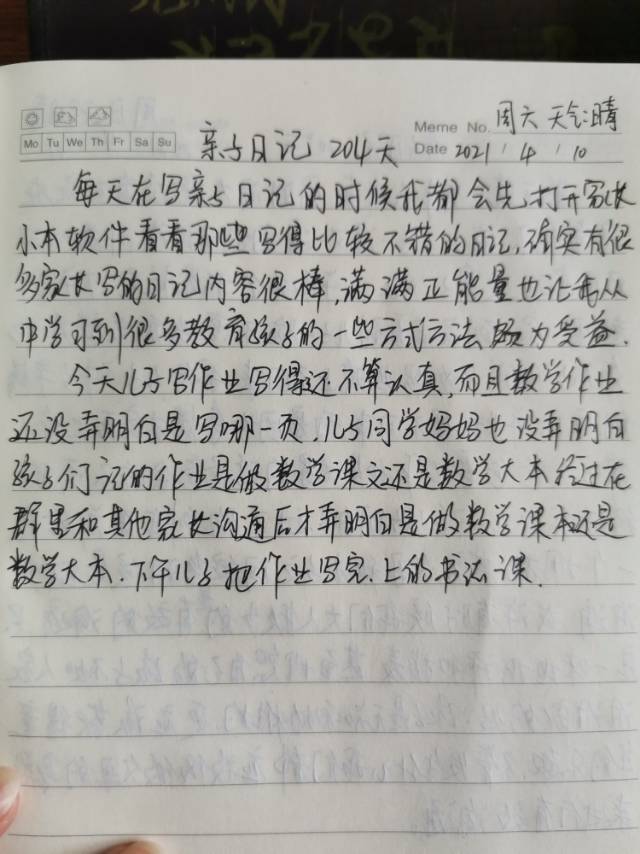 周六 天气:晴
Meme No.
Mo Tu We Th Fr Sa Su
亲子日记 204天
Date 2021 / 4 / 10
每天在写亲子日记的时候我都会先打开家长
小本软件看看那些写得比较不错的日记,确实有很
多家长写的日记内容很棒,满满正能量也让我从
中学习到很多教育孩子的一些方式方法 极为受益.
今天儿子写作业写得还不算认真,而且数学作业
还没弄明白是写哪一页,儿子同学妈妈也没弄明白
孩子们记的作业是做数学课文还是数学大本 经过在
群里和其他家长沟通后才弄明白是做数学课本还是
数学大本.下午儿子把作业写完.上的书法课.